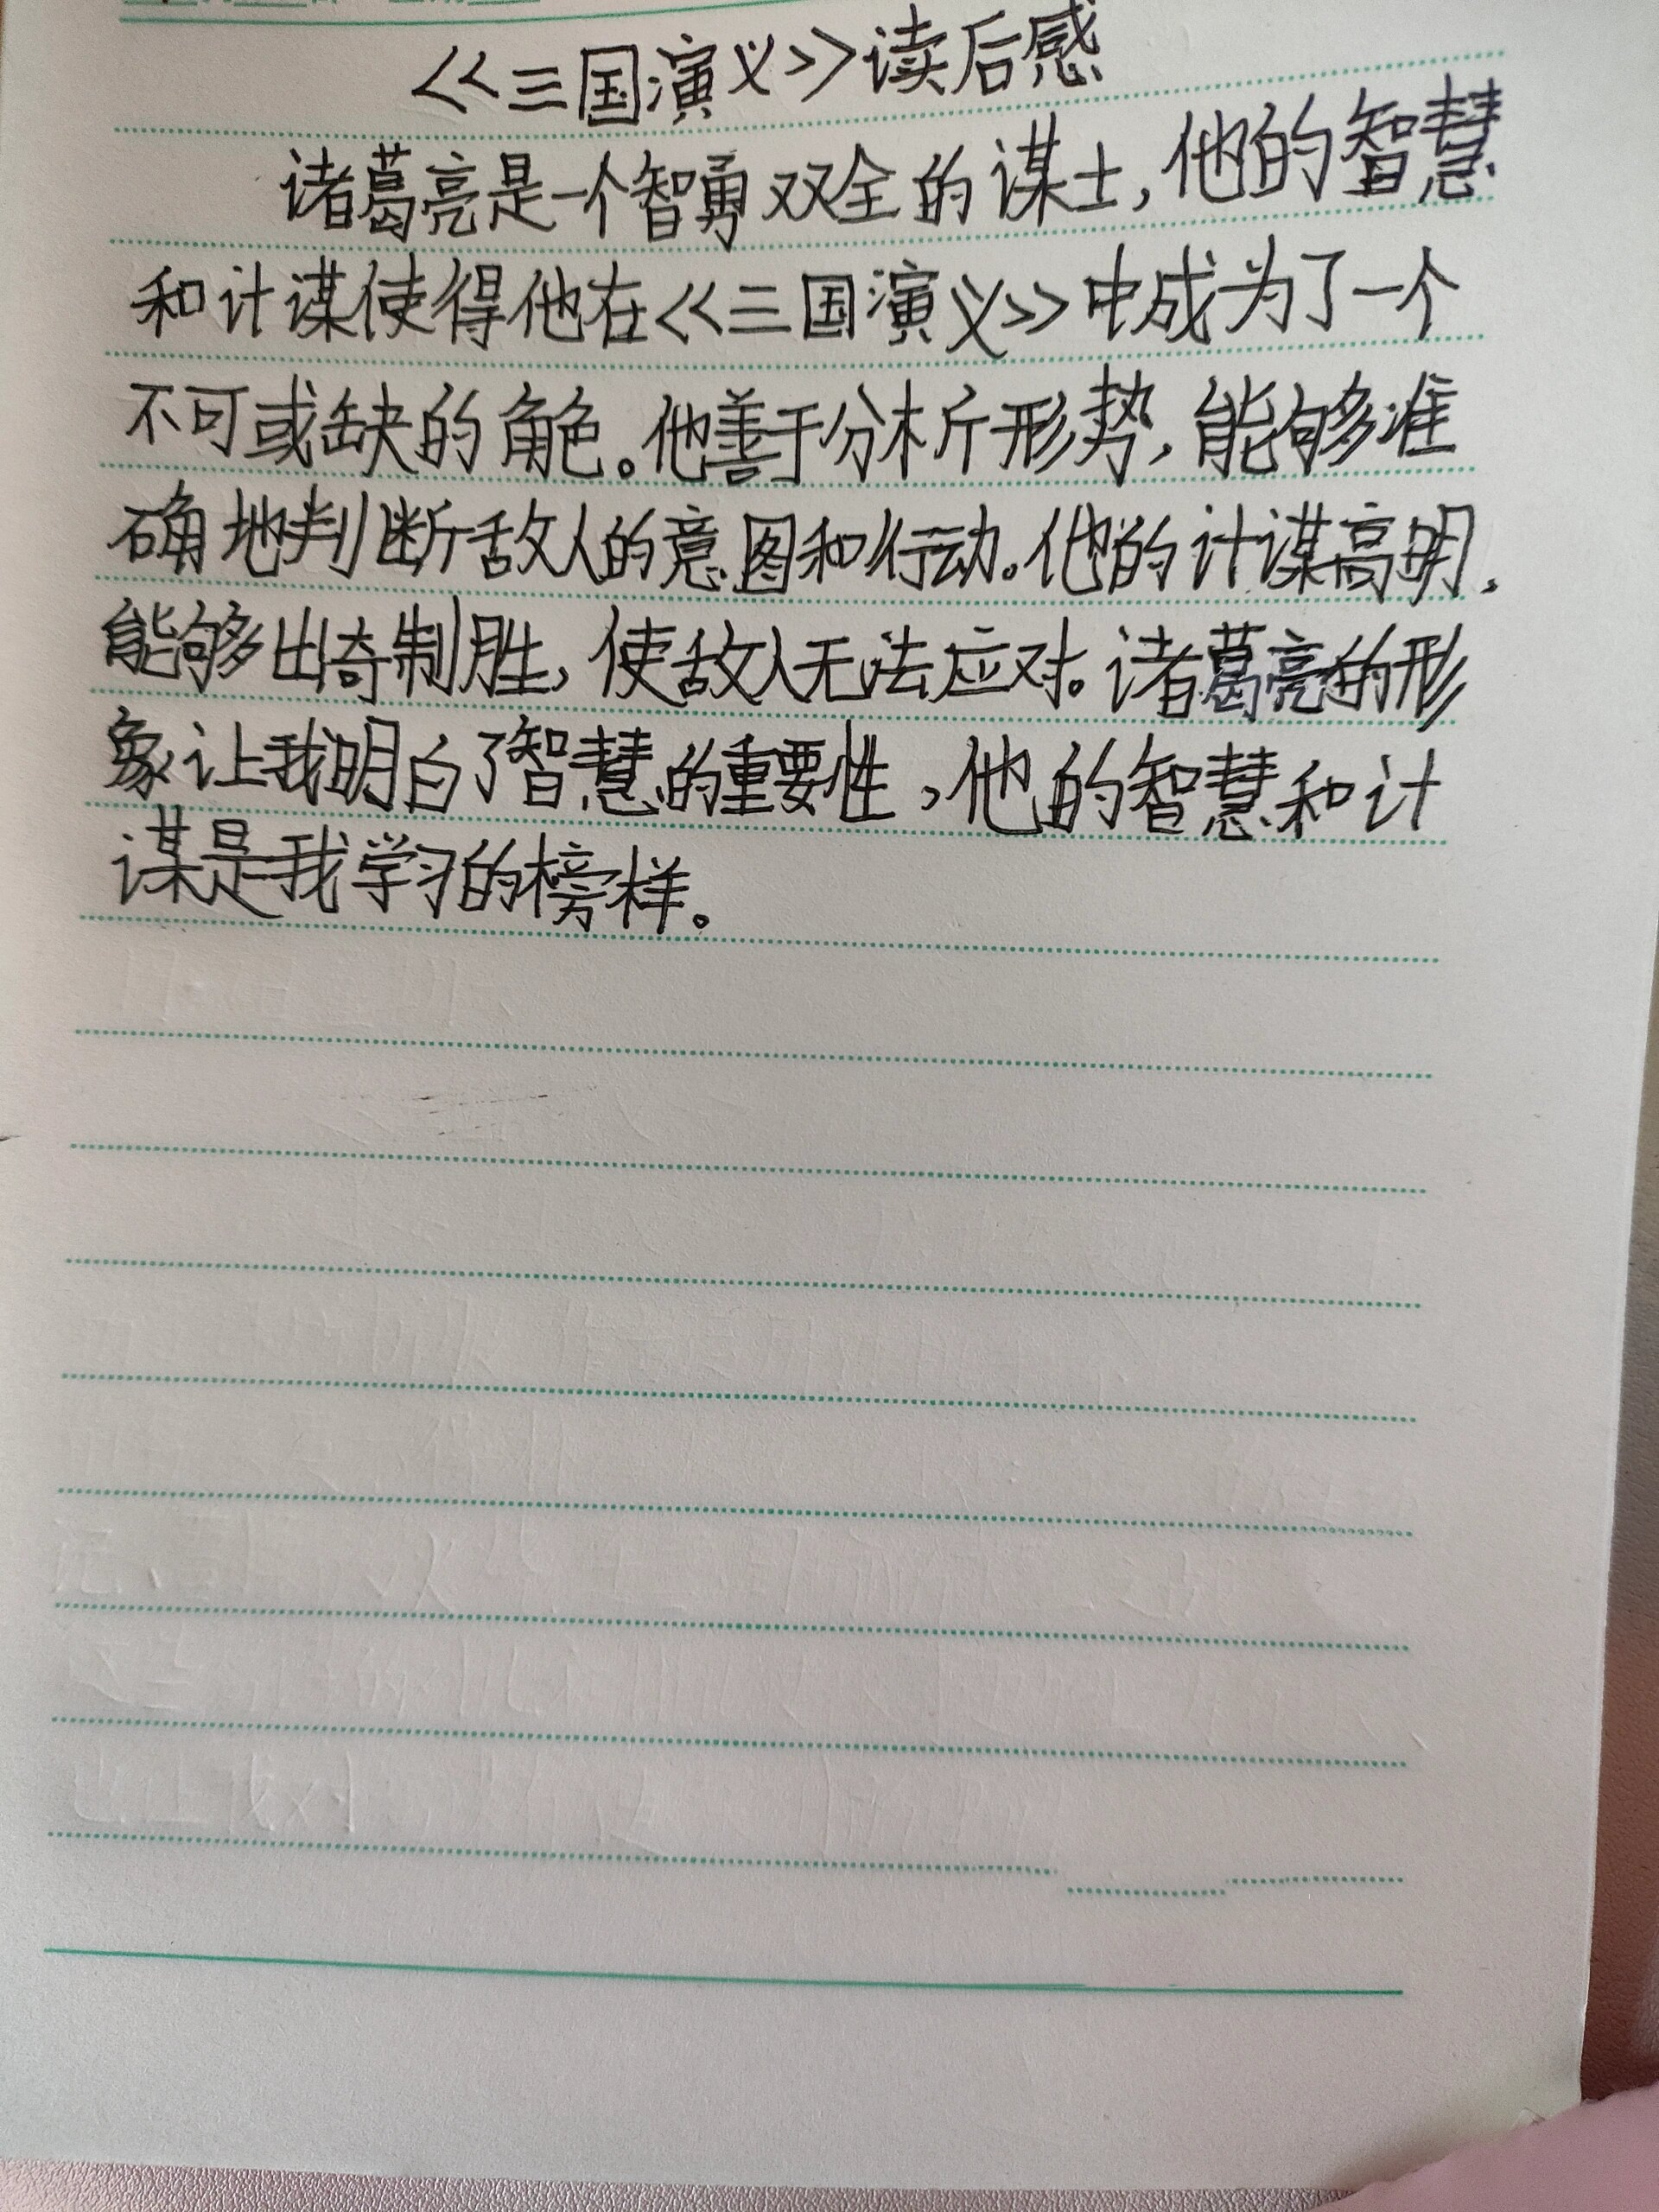 《三国演义》读后感
诸葛亮是一个智勇双全的谋士,他的智慧
和计谋使得他在《三国演义》中成为了一个
不可或缺的角色。他善于分析形势,能够准
确地判断敌人的意图和行动。他的计谋高明,
能够出奇制胜,使敌人无法应对。诸葛亮的形
象让我明白了智慧的重要性,他的智慧和计
谋是我学习的榜样。